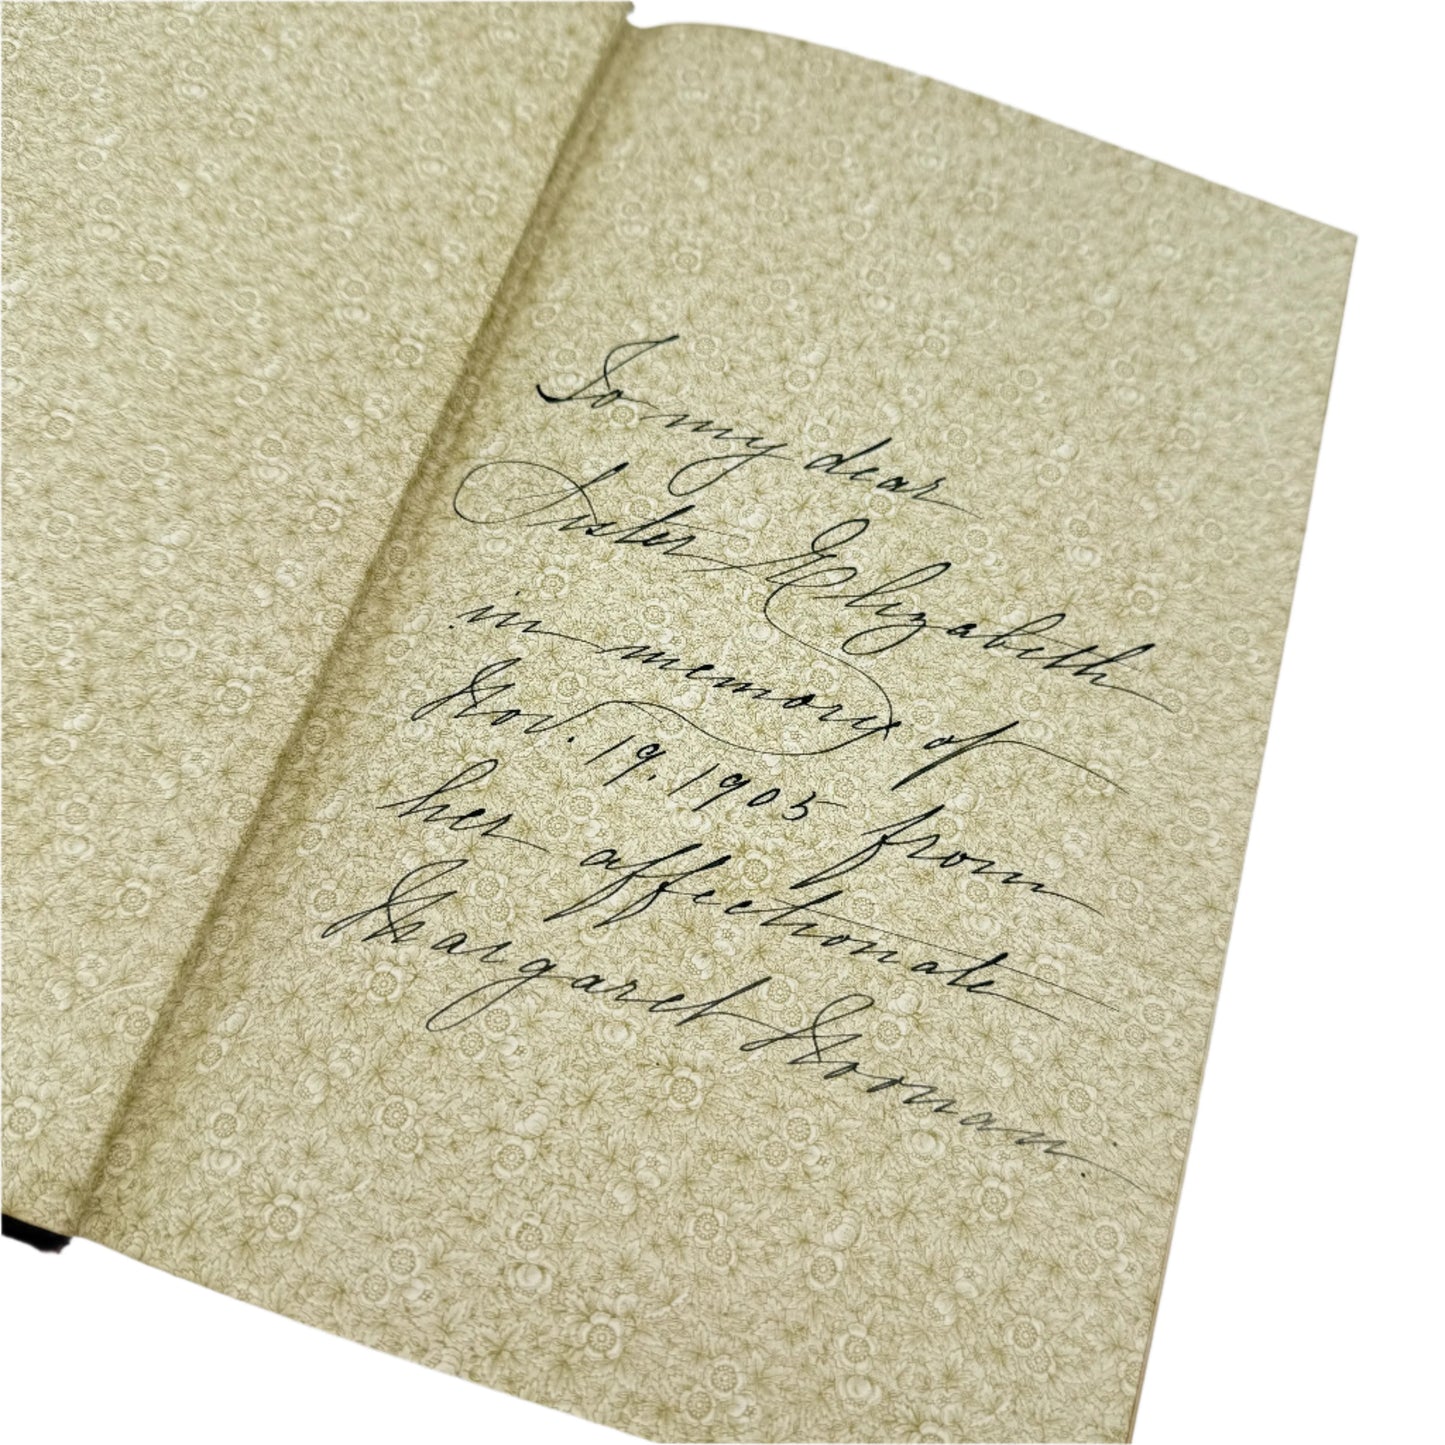 To my dear
Sister Elizabeth
in memory of
Nov. 19. 1905 from
her affectionate
Margaret